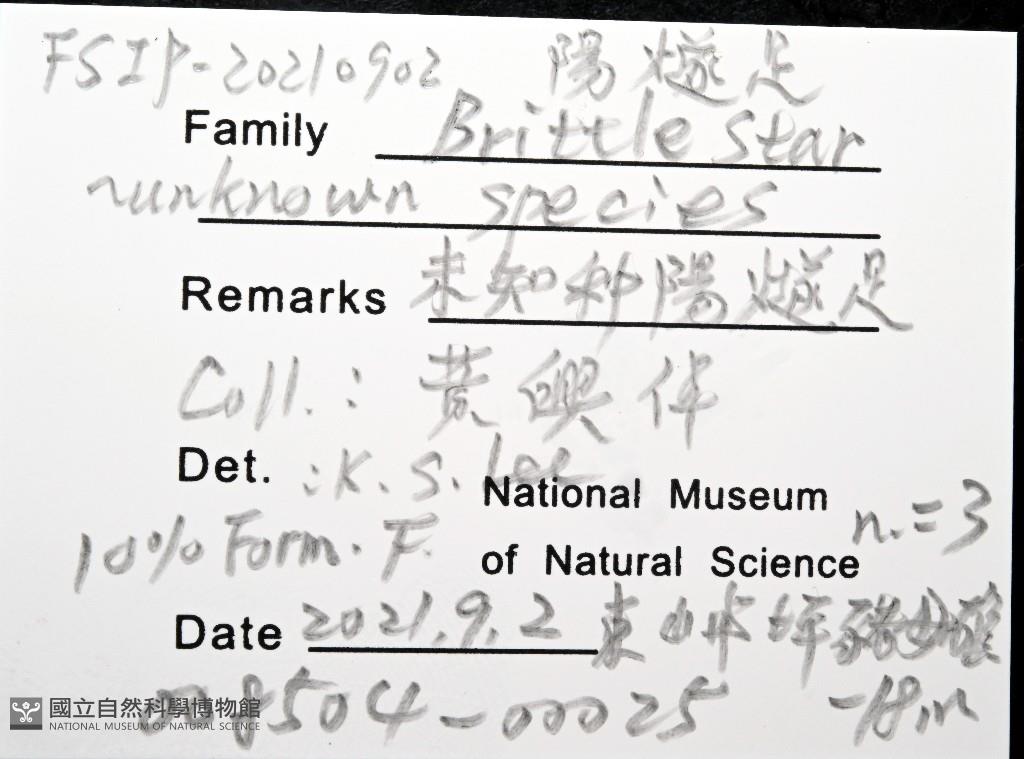 FSIP-20210902 陽燧足
Family Brittle star
~unknown species
Remarks 未知科陽燧足
Coll.: 黃興倬
Det. :K.S. Lee
National Museum
10% Form. F. n.=3
of Natural Science
Date 2021.9.2 東嶼坪豬母礁
8504-00025 -18m
國立自然科學博物館
NATIONAL MUSEUM OF NATURAL SCIENCE